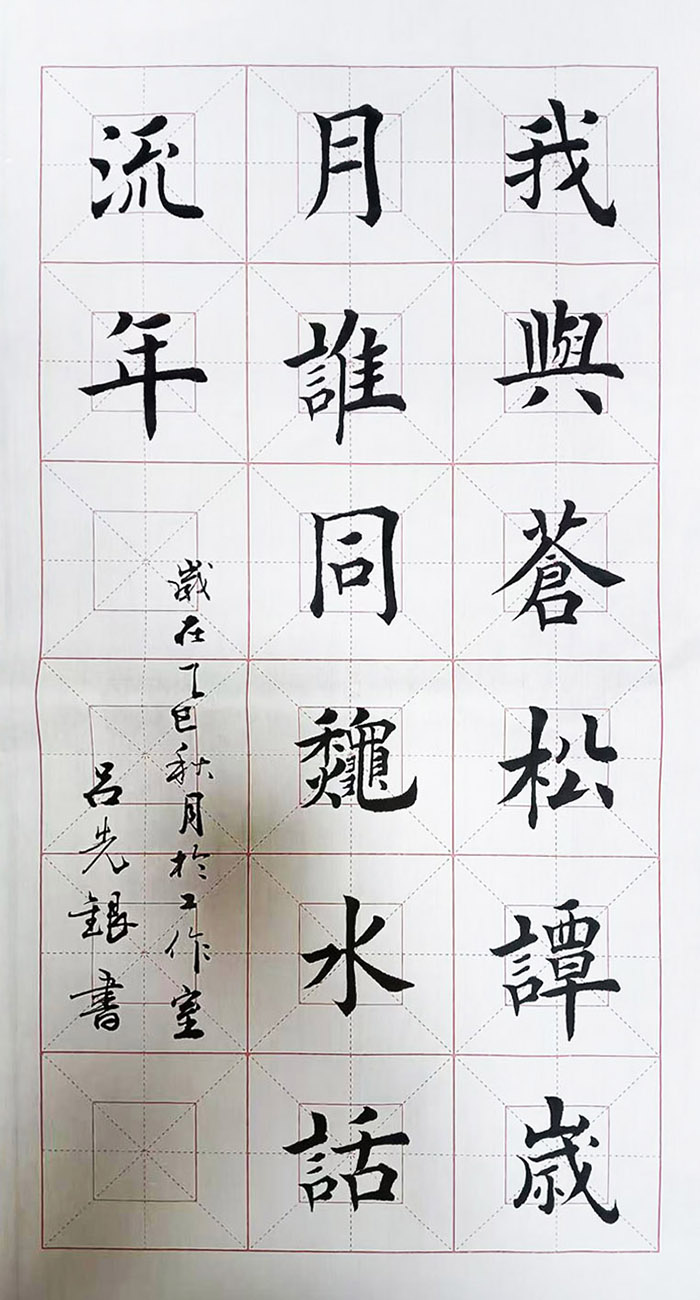 我與蒼松譚歲
月誰同龝水話
流年
歲在乙巳秋月於工作室
呂先銀書